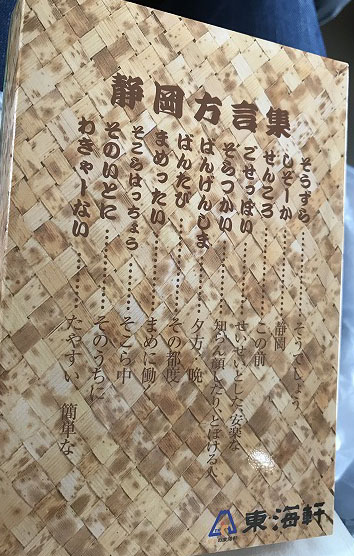 静岡方言集
そうずら…………そうでしょう
しぞーか…………静岡
せんころ…………この前
ごせっぽい…………せいせいとした、安楽な
そらっつかい…………知らん顔したり、とぼける人
ばんげんしま…………夕方、晩
ばんたび…………その都度
まめったい…………まめに働く
そこらはっちょら…………そこら中
そのいとに…………そのうちに
わきゃーない…………たやすい 簡単な
東海軒